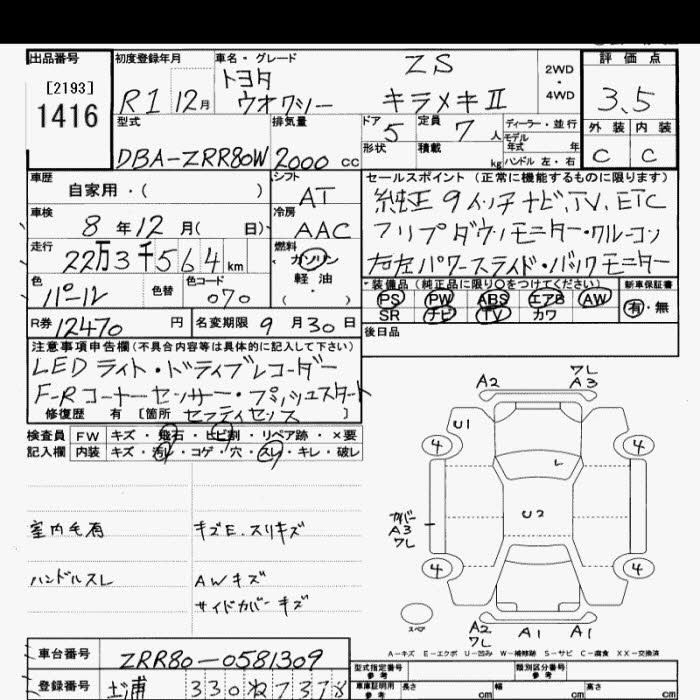 出品番号 初度登録年月 車名・グレード 評価点
[2193] トヨタ ZS 2WD
1416 R1 12月 ウオクシー キラメキⅡ ・4WD 3.5
型式 排気量 ドア 5 定員 7人 ディーラー・並行 外装 内装
DBA-ZRR80W 2000cc 形状 積載 kg モデル年式 年 ハンドル 左・右 C C
車歴 シフト セールスポイント (正常に機能するものに限ります)
自家用・( ) AT 純正9インチナビ,TV,ETC
車検 冷房 フリップダウンモニター・クルーコン
8年12月( 日) AAC 右左パワースライド・バックモニター
走行 燃料
22万3千564km ガソリン
色 色替 色コード 軽油
パール 070 ・( )
装備品 (純正品に限り○をつけてください) 新車保証書
PS PW ABS エアB AW 有・無
SR ナビ TV カワ
R券 12470円 名変期限 9月30日 後日品
注意事項申告欄(不具合内容等は具体的に記入して下さい)
LEDライト・ドライブレコーダー
F-Rコーナーセンサー・プッシュスタート
修復歴 有 [箇所 セフティセンス ]
検査員 FW キズ・飛石・ヒビ割・リペア跡・×要
記入欄 内装 キズ・汚レ・コゲ・穴・スレ・キレ・破レ
室内毛有 キズE.スリキズ
ハンドルスレ AWキズ
サイドカバーキズ
A2 ワレ A3
U1
4 4
レ
U2
カバー A3 ワレ
4 4
スペア
A2 ワレ A1 A1
A-キズ E-エクボ U-凹み W-補修跡 S-サビ C-腐食 XX-交換済
車台番号 ZRR80-0581309
登録番号 土浦 330 ね 7378
型式指定番号 参考 類別区分番号 参考
車庫証明用 参考 長さ cm 幅 cm 高さ cm